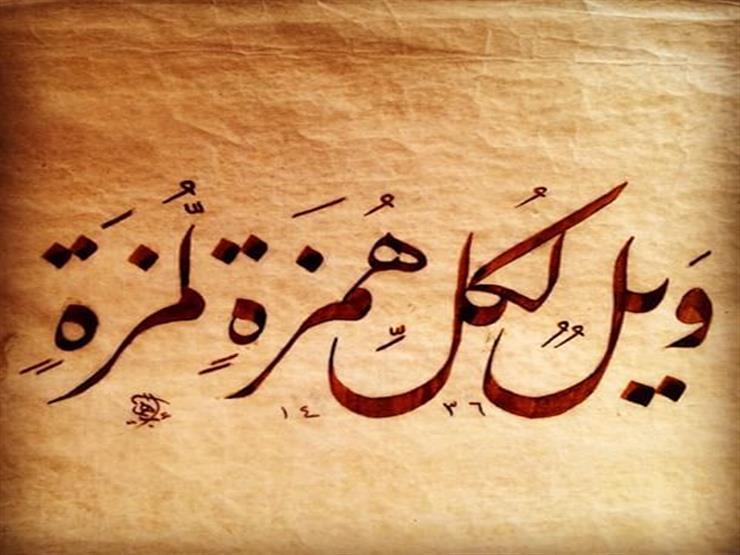 وَيلٌ لِكُلِّ هُمَزَةٍ لُّمَزَةٍ
١٤ ٣٦